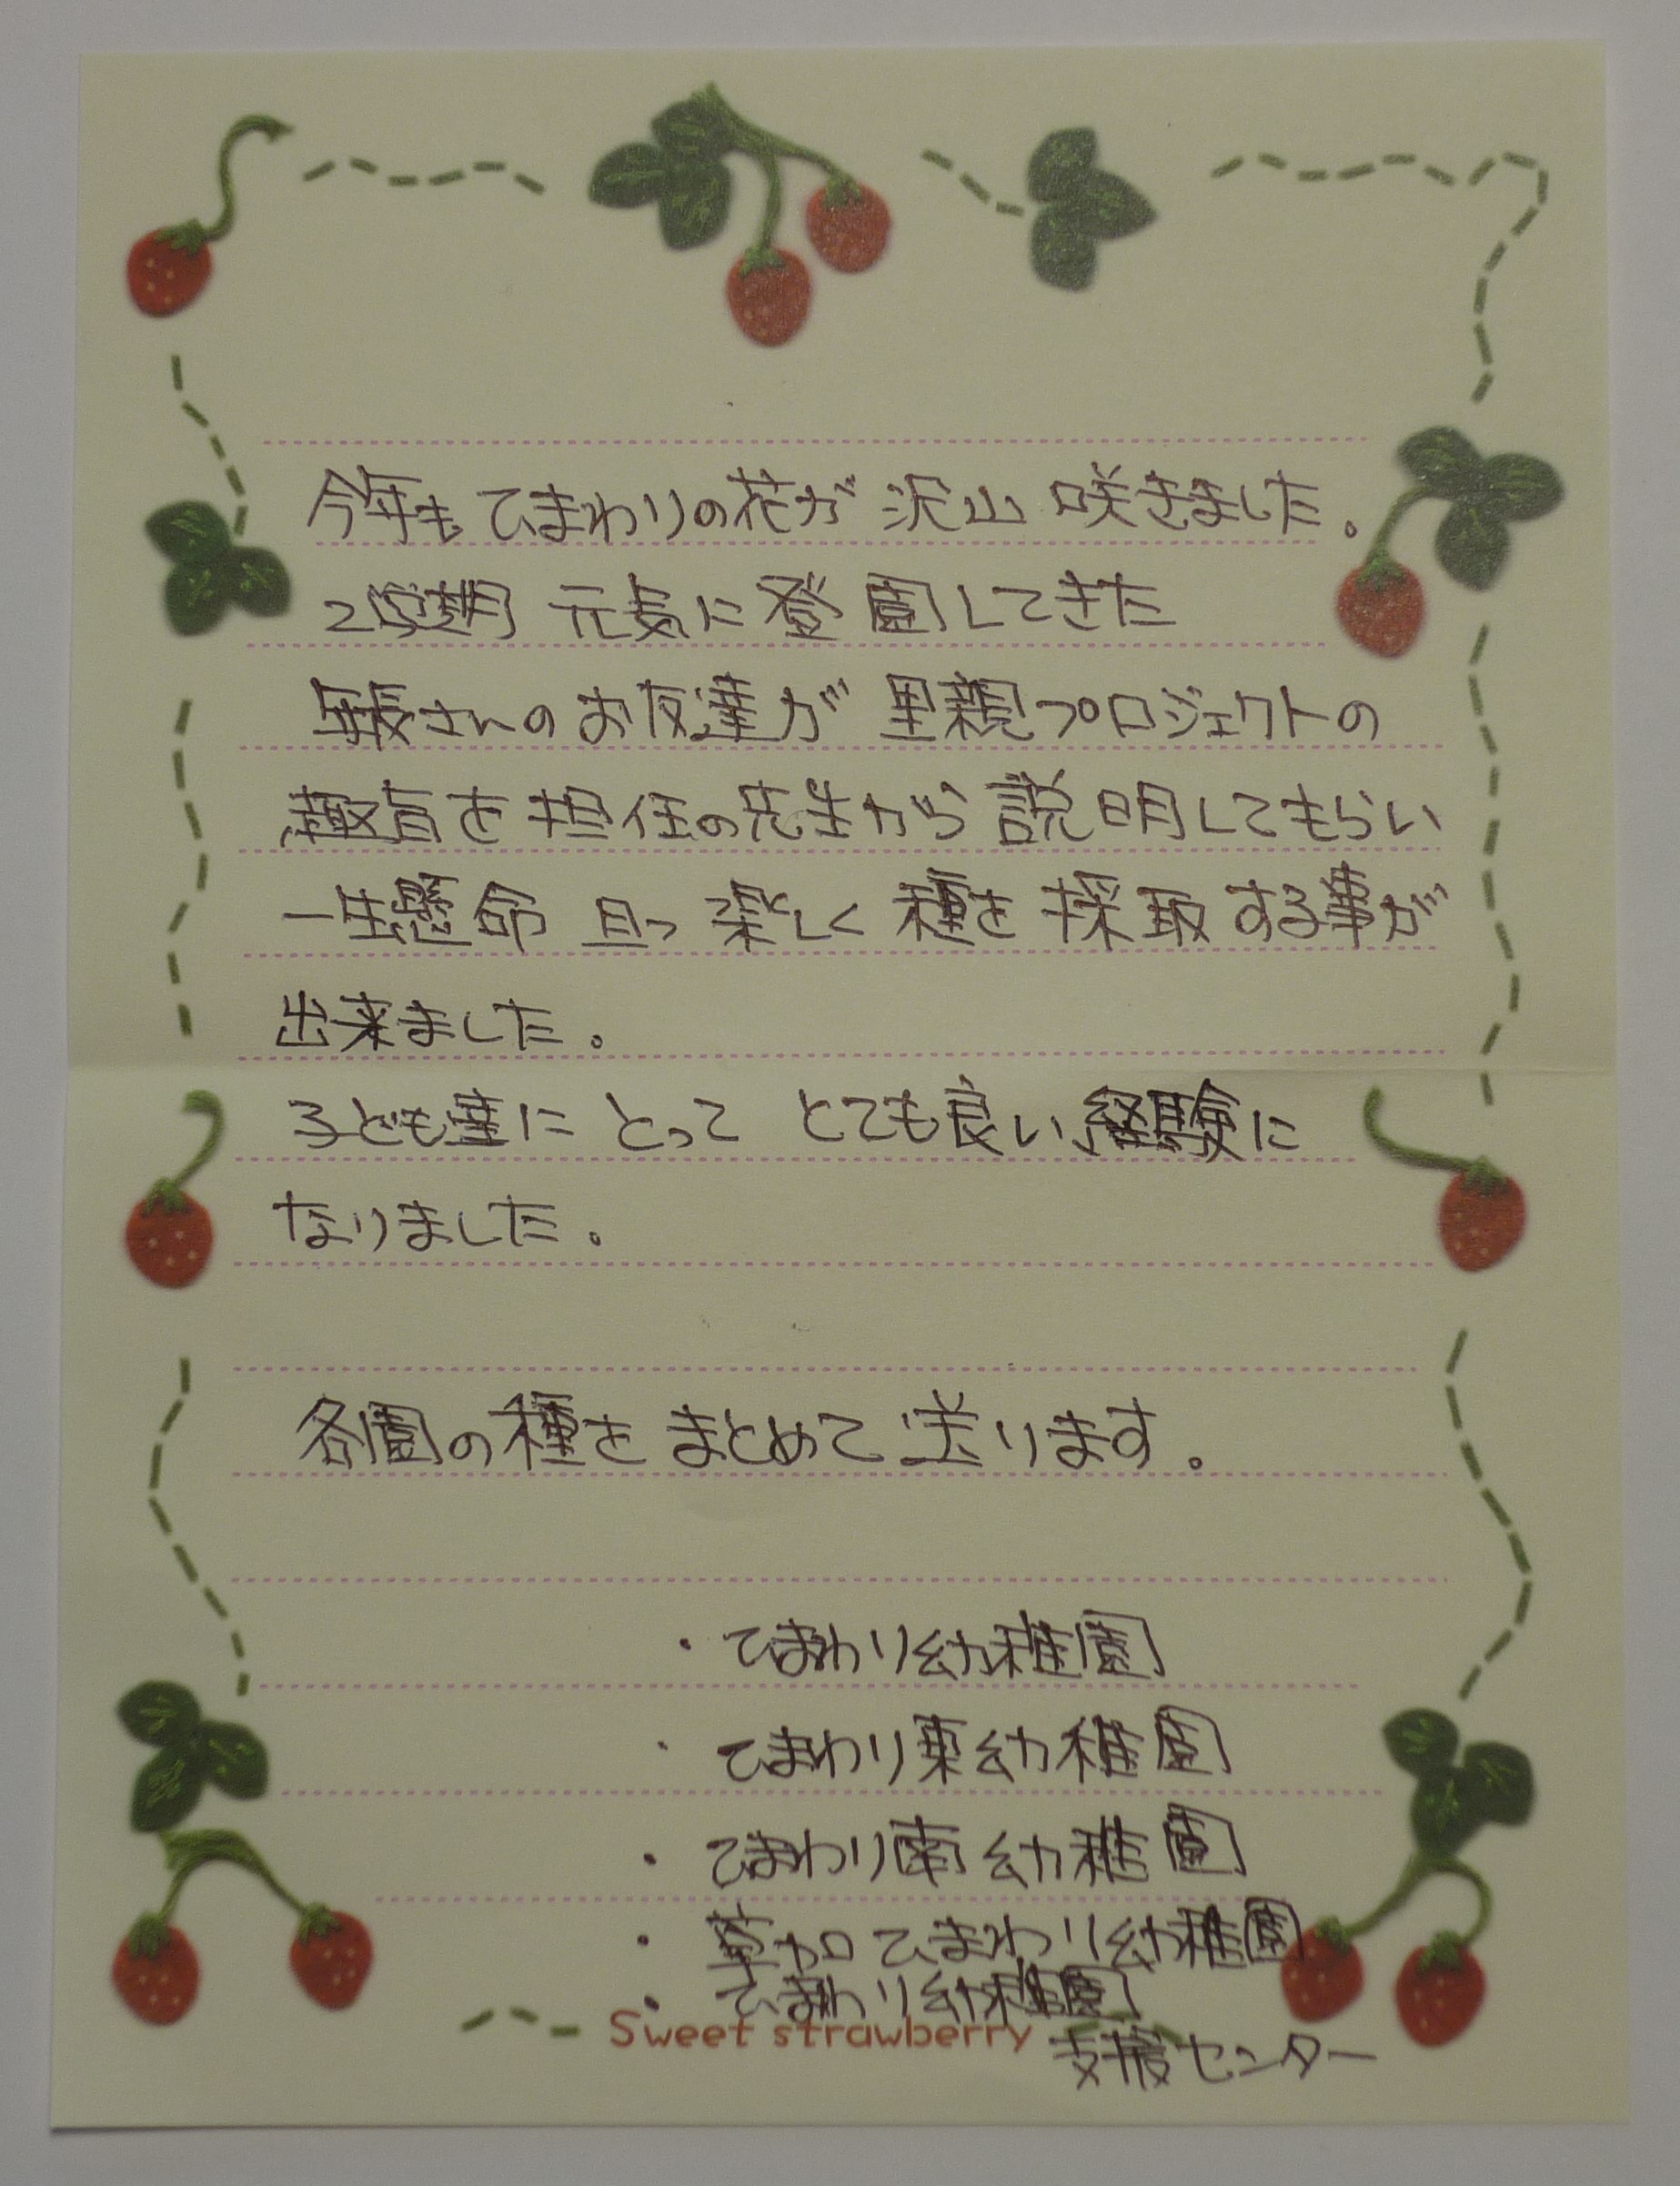 今年もひまわりの花が沢山咲きました。
2学期 元気に登園してきた
年長さんのお友達が里親プロジェクトの
趣旨を担任の先生から説明してもらい
一生懸命 且つ楽しく種を採取する事が
出来ました。
子ども達にとって とても良い経験に
なりました。
各園の種をまとめて送ります。
・ひまわり幼稚園
・ひまわり東幼稚園
・ひまわり南幼稚園
・草加ひまわり幼稚園
・ひまわり幼稚園
Sweet strawberry
支援センター